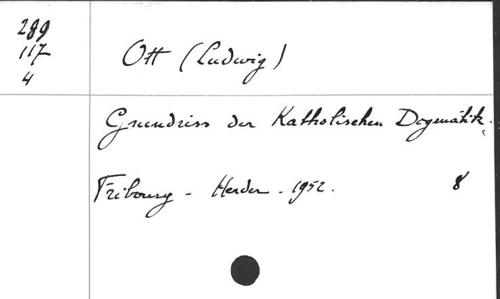 289
117
4
Ott (Ludwig)
Grundriss der Katholischen Dogmatik.
Fribourg - Herder - 1952. 8